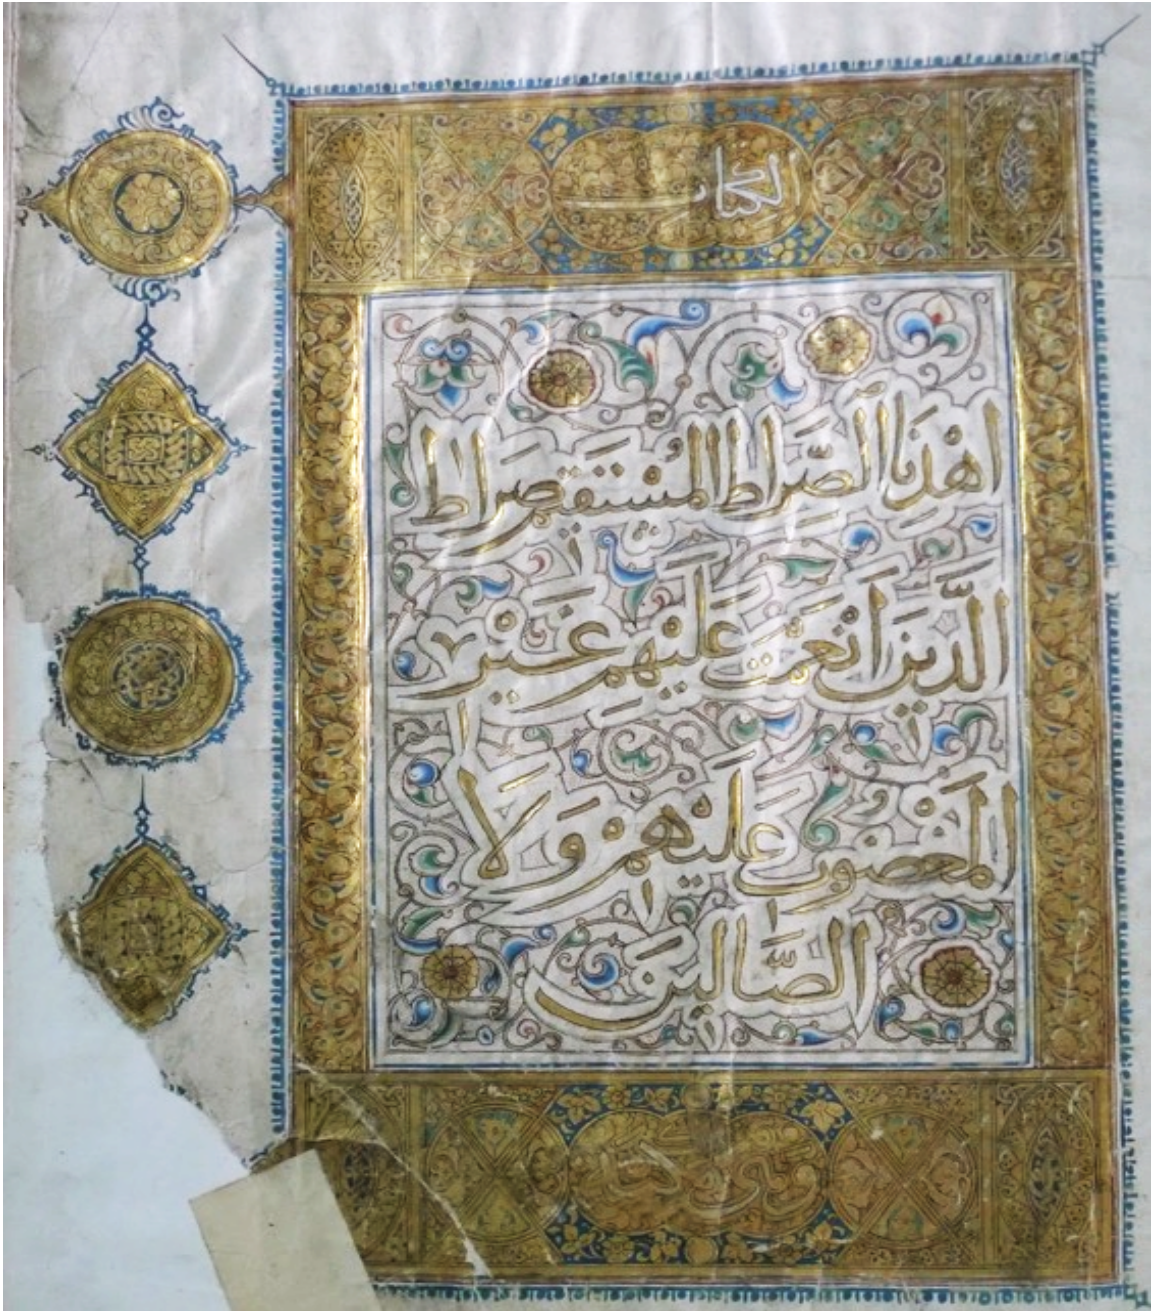 الكتاب
اهْدِنَا الصِّرَاطَ الْمُسْتَقِيمَ صِرَاطَ
الَّذِينَ أَنْعَمْتَ عَلَيْهِمْ غَيْرِ
الْمَغْضُوبِ عَلَيْهِمْ وَلَا
الضَّالِّينَ